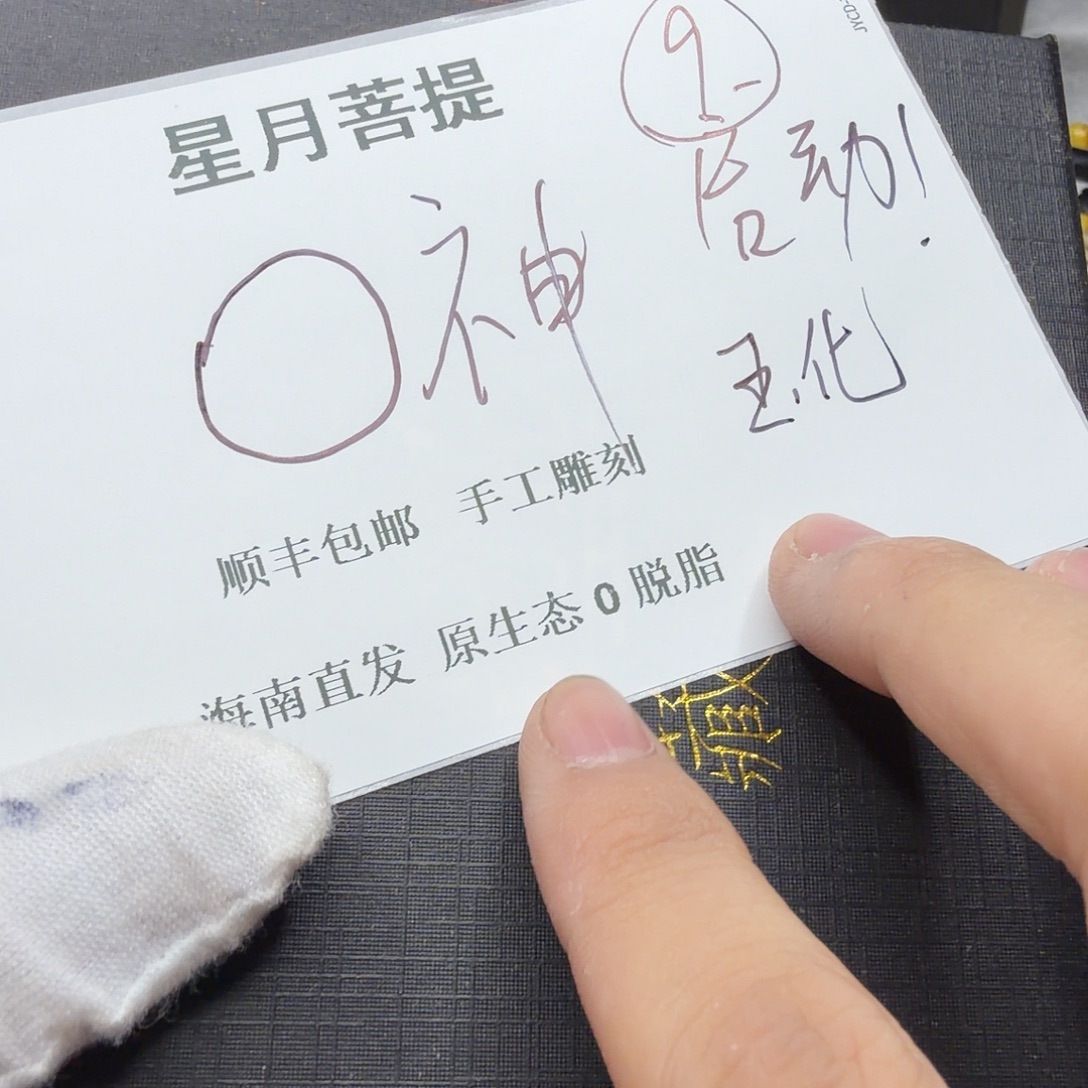 星月菩提
9.-
〇神
启动!
玉化
顺丰包邮 手工雕刻
海南直发 原生态0脱脂
JYCD-